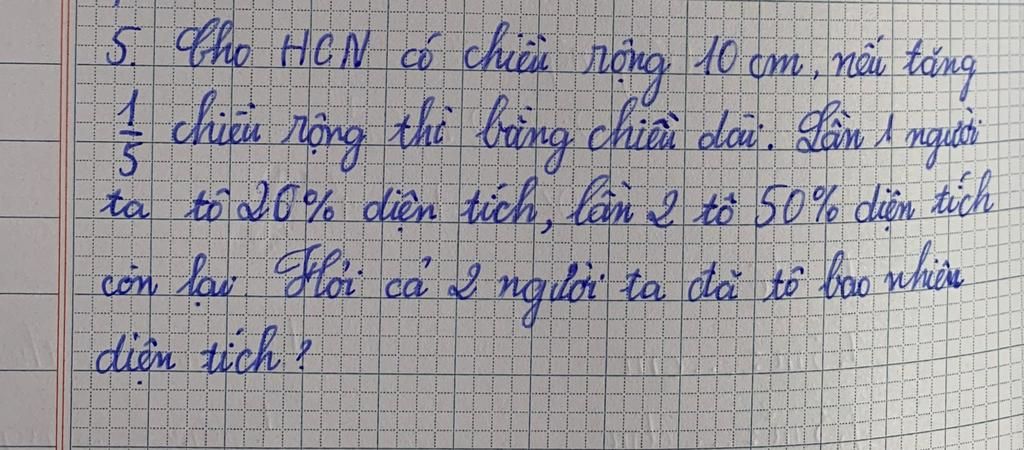 5. Cho HCN có chiều rộng 10 cm, nếu tăng
1/5 chiều rộng thì bằng chiều dài. Lần 1 người
ta tô 20% diện tích, lần 2 tô 50% diện tích
còn lại. Hỏi cả 2 người ta đã tô bao nhiêu
diện tích?